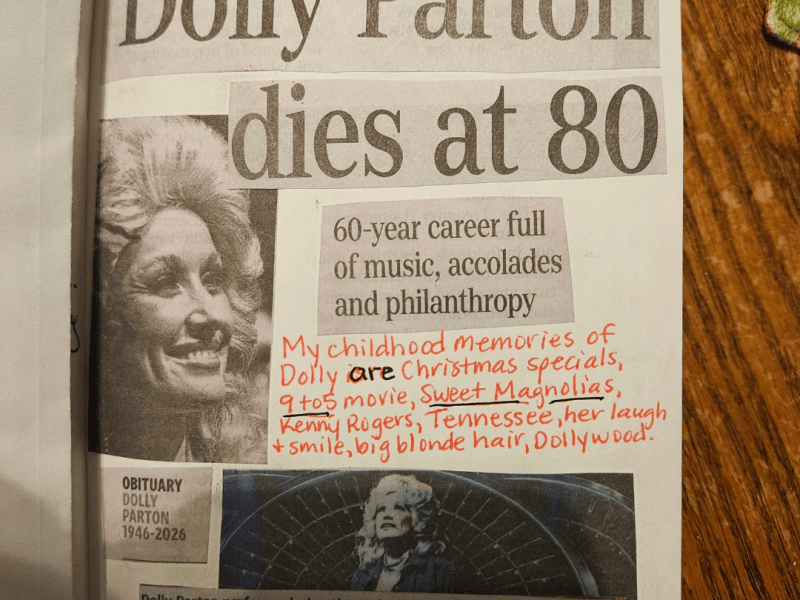 Dolly Parton
dies at 80
60-year career full
of music, accolades
and philanthropy
My childhood memories of
Dolly are Christmas specials,
9 to 5 movie, Sweet Magnolias,
Kenny Rogers, Tennessee, her laugh
+ smile, big blonde hair, Dollywood.
OBITUARY
DOLLY
PARTON
1946-2026